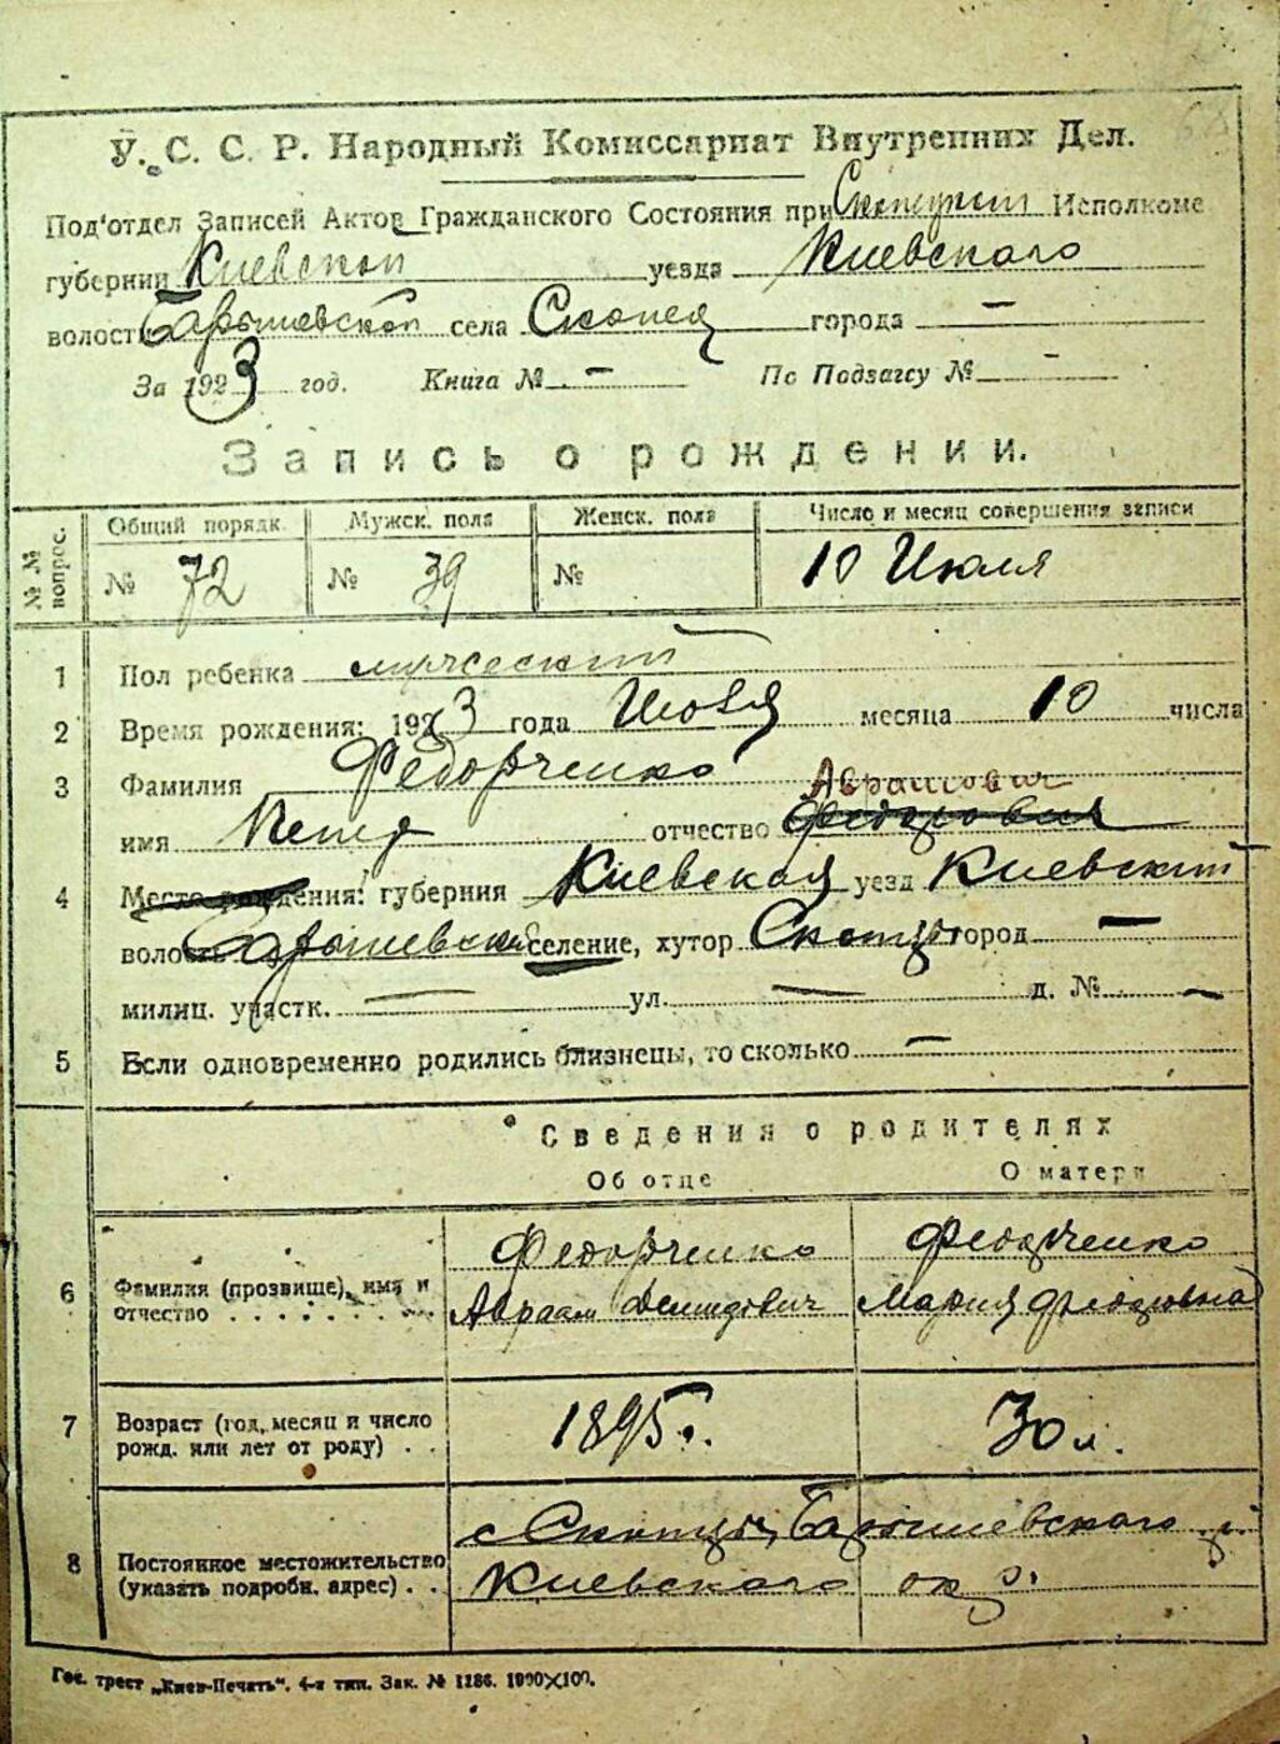 У. С. С. Р. Народный Комиссариат Внутренних Дел.
Под'отдел Записей Актов Гражданского Состояния при Исполкоме
губернии Киевской уезда Киевского
волости Барышевской села города —
За 1923 год. Книга № — По Подзагсу № -
Запись о рождении.
№ № вопрос. Общий порядк. Мужск. пола Женск. пола Число и месяц совершения записи
№ 72 № 39 № 10 Июля
1 Пол ребенка мужеский
2 Время рождения: 1923 года месяца 10 числа
3 Фамилия Федорченко
Аврамович
имя Петр отчество Федорович
4 Место рождения: губерния Киевская уезд Киевский
волость Барышевская селение, хутор город —
милиц. участк. — ул. — д. № —
5 Если одновременно родились близнецы, то сколько —
Сведения о родителях
Об отце О матери
6 Фамилия (прозвище), имя и отчество . . . . . . . . Федорченко Авраам Демидович Федорченко Мария Федоровна
7 Возраст (год, месяц и число рожд. или лет от роду) . . 1895г. 30 л.
8 Постоянное местожительство (указать подробн. адрес) . . с Барышевского р. Киевского окр.
Гос. трест „Киев-Печать“. 4-я тип. Зак. № 1286. 1000×100.